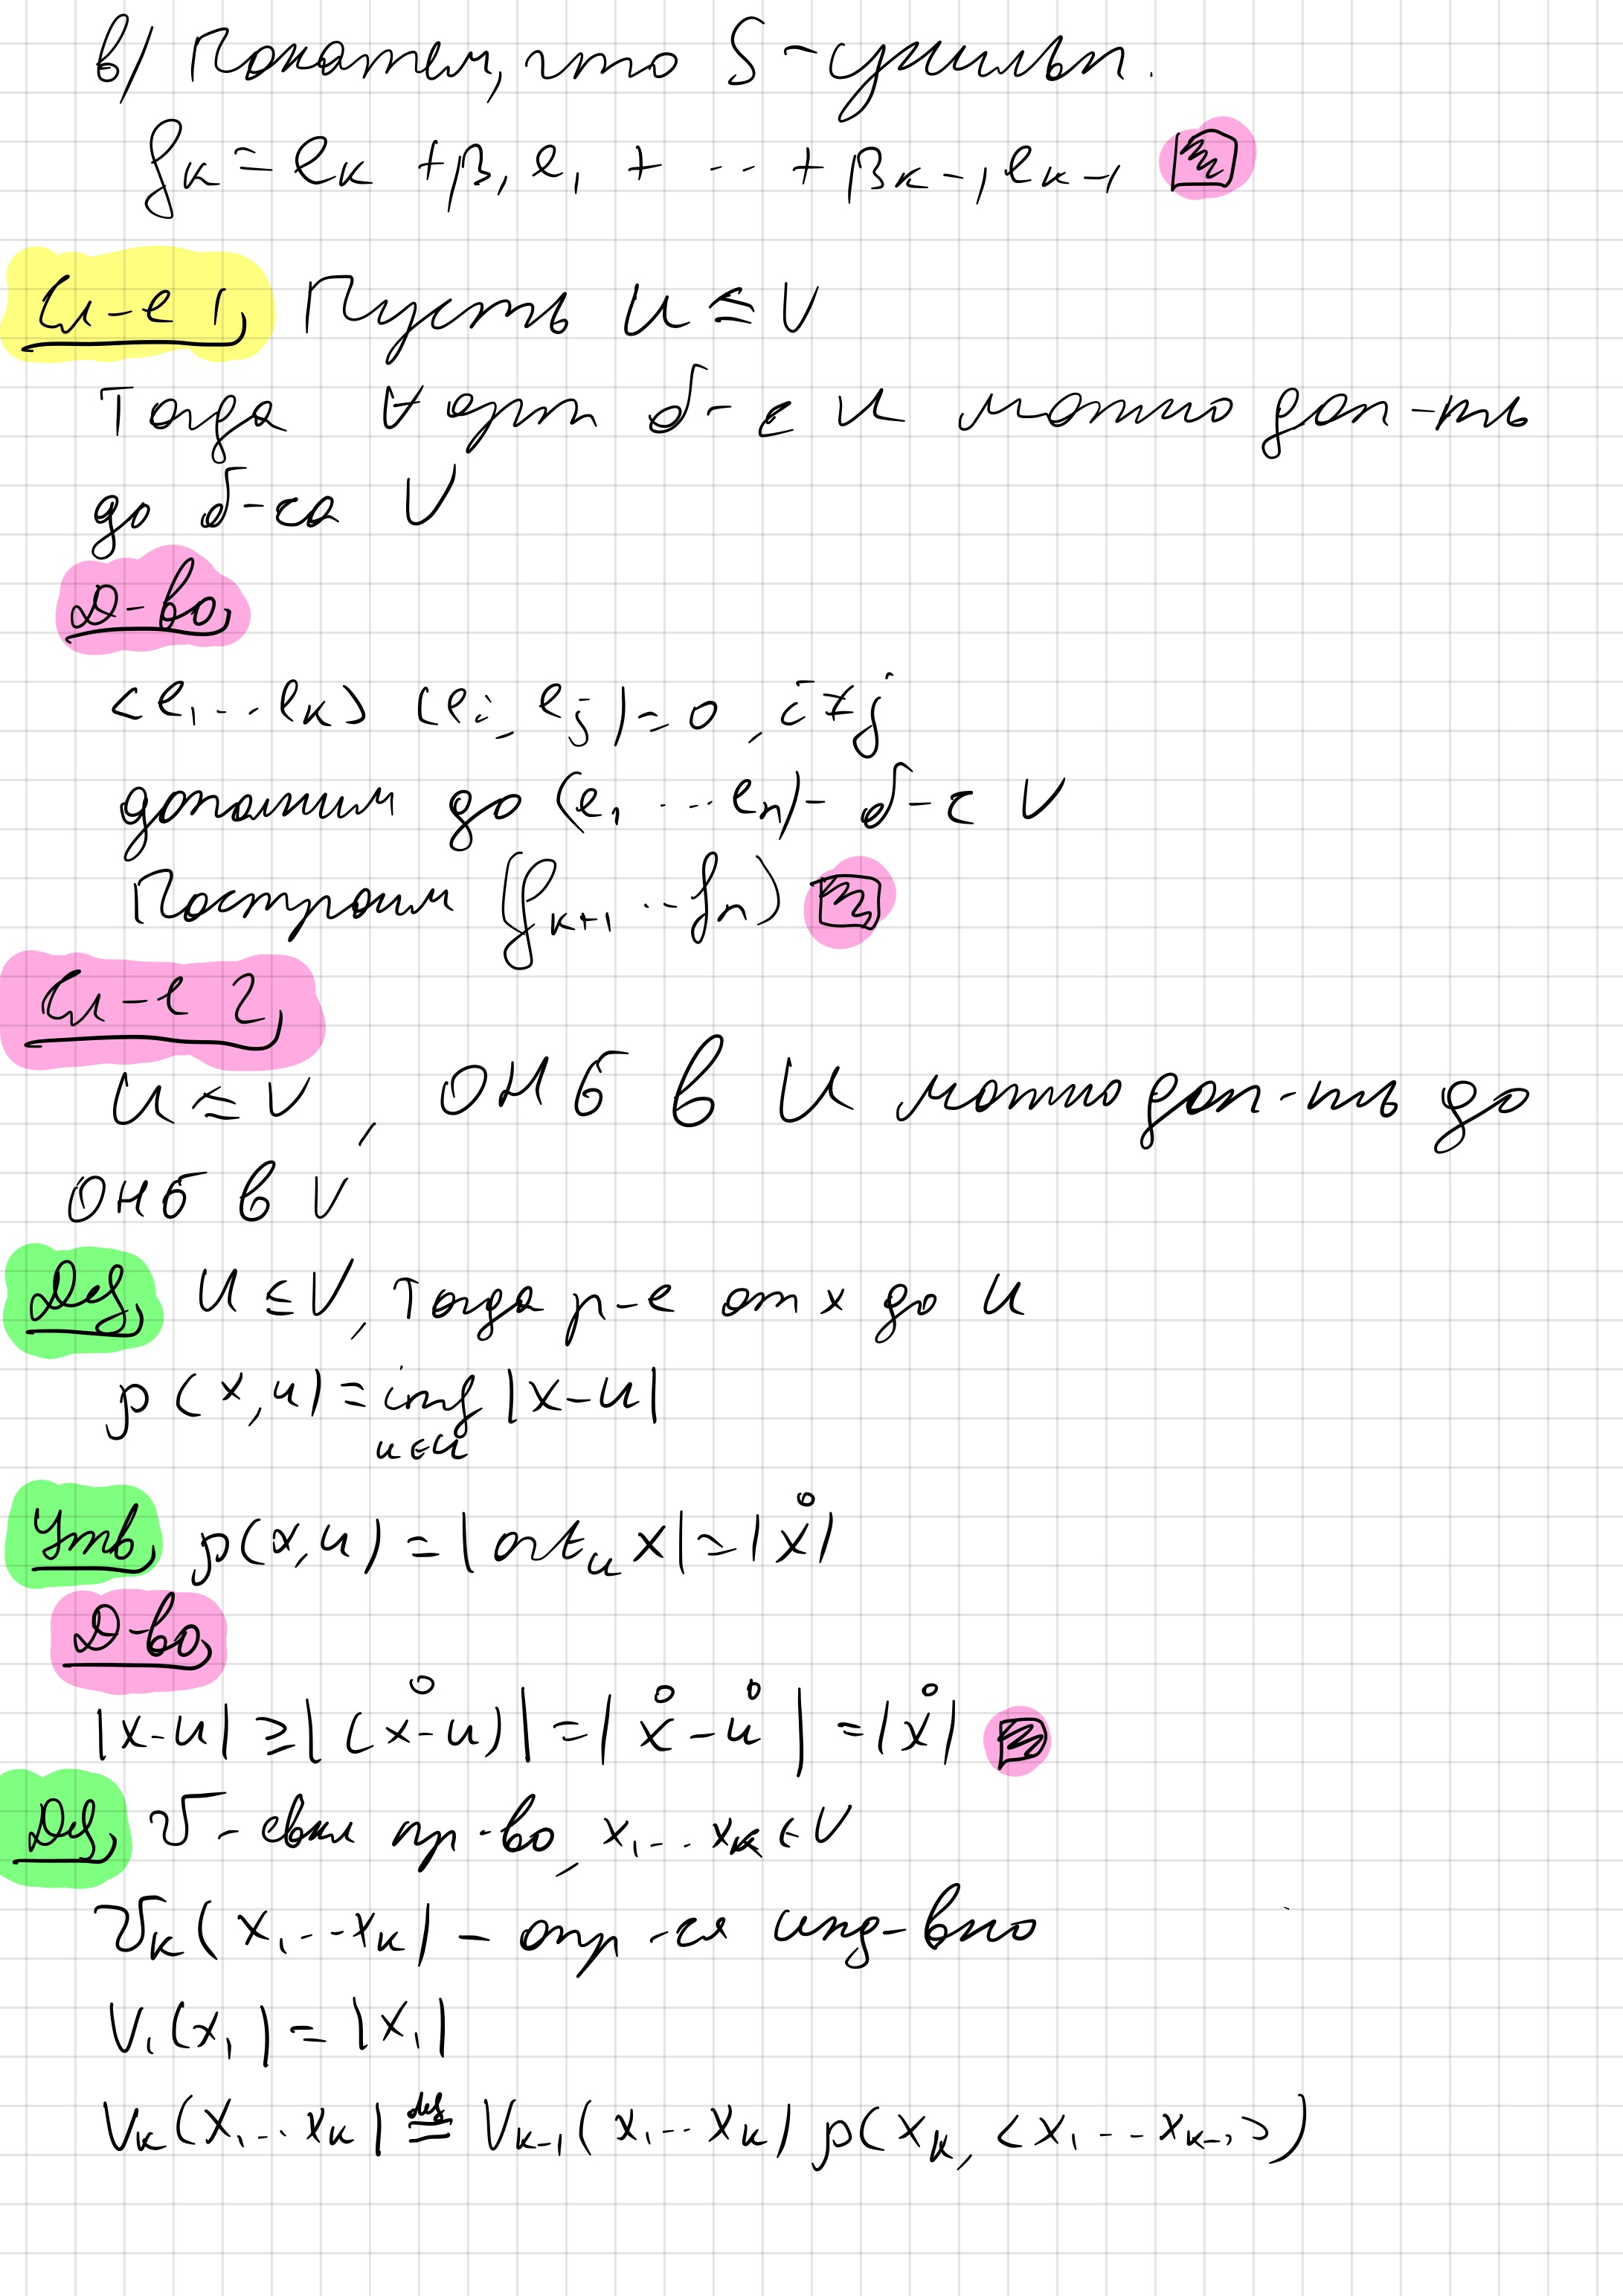 в) Покажем, что S - унитреуг.
f_k = e_k + β_1 e_1 + ... + β_{k-1} e_{k-1}
Сл-е 1, Пусть U ≤ V
Тогда ∀ орт б-с U можно доп-ть
до б-са V
Д-во,
<e_1...e_k> (e_i, e_j) = 0, i ≠ j
дополним до (e_1 ... e_n) - б-с V
Построим (f_{k+1} ... f_n)
Сл-е 2,
U ≤ V, ОНБ в U можно доп-ть до
ОНБ в V
Def, U ≤ V, тогда р-е от x до U
ρ(x, u) = inf_{u∈U} |x-u|
Утв, ρ(x, u) = |ort_u x| = |x̊|
Д-во,
|x-u| ≥ |(x-u)°| = |x̊ - ů| = |x̊|
Def, V - евкл пр-во, x_1...x_k ∈ V
V_k(x_1...x_k) - опр-ся инд-вно
V_1(x_1) = |x_1|
V_k(x_1...x_k) def= V_{k-1}(x_1...x_k) ρ(x_k, <x_1...x_{k-1}>)